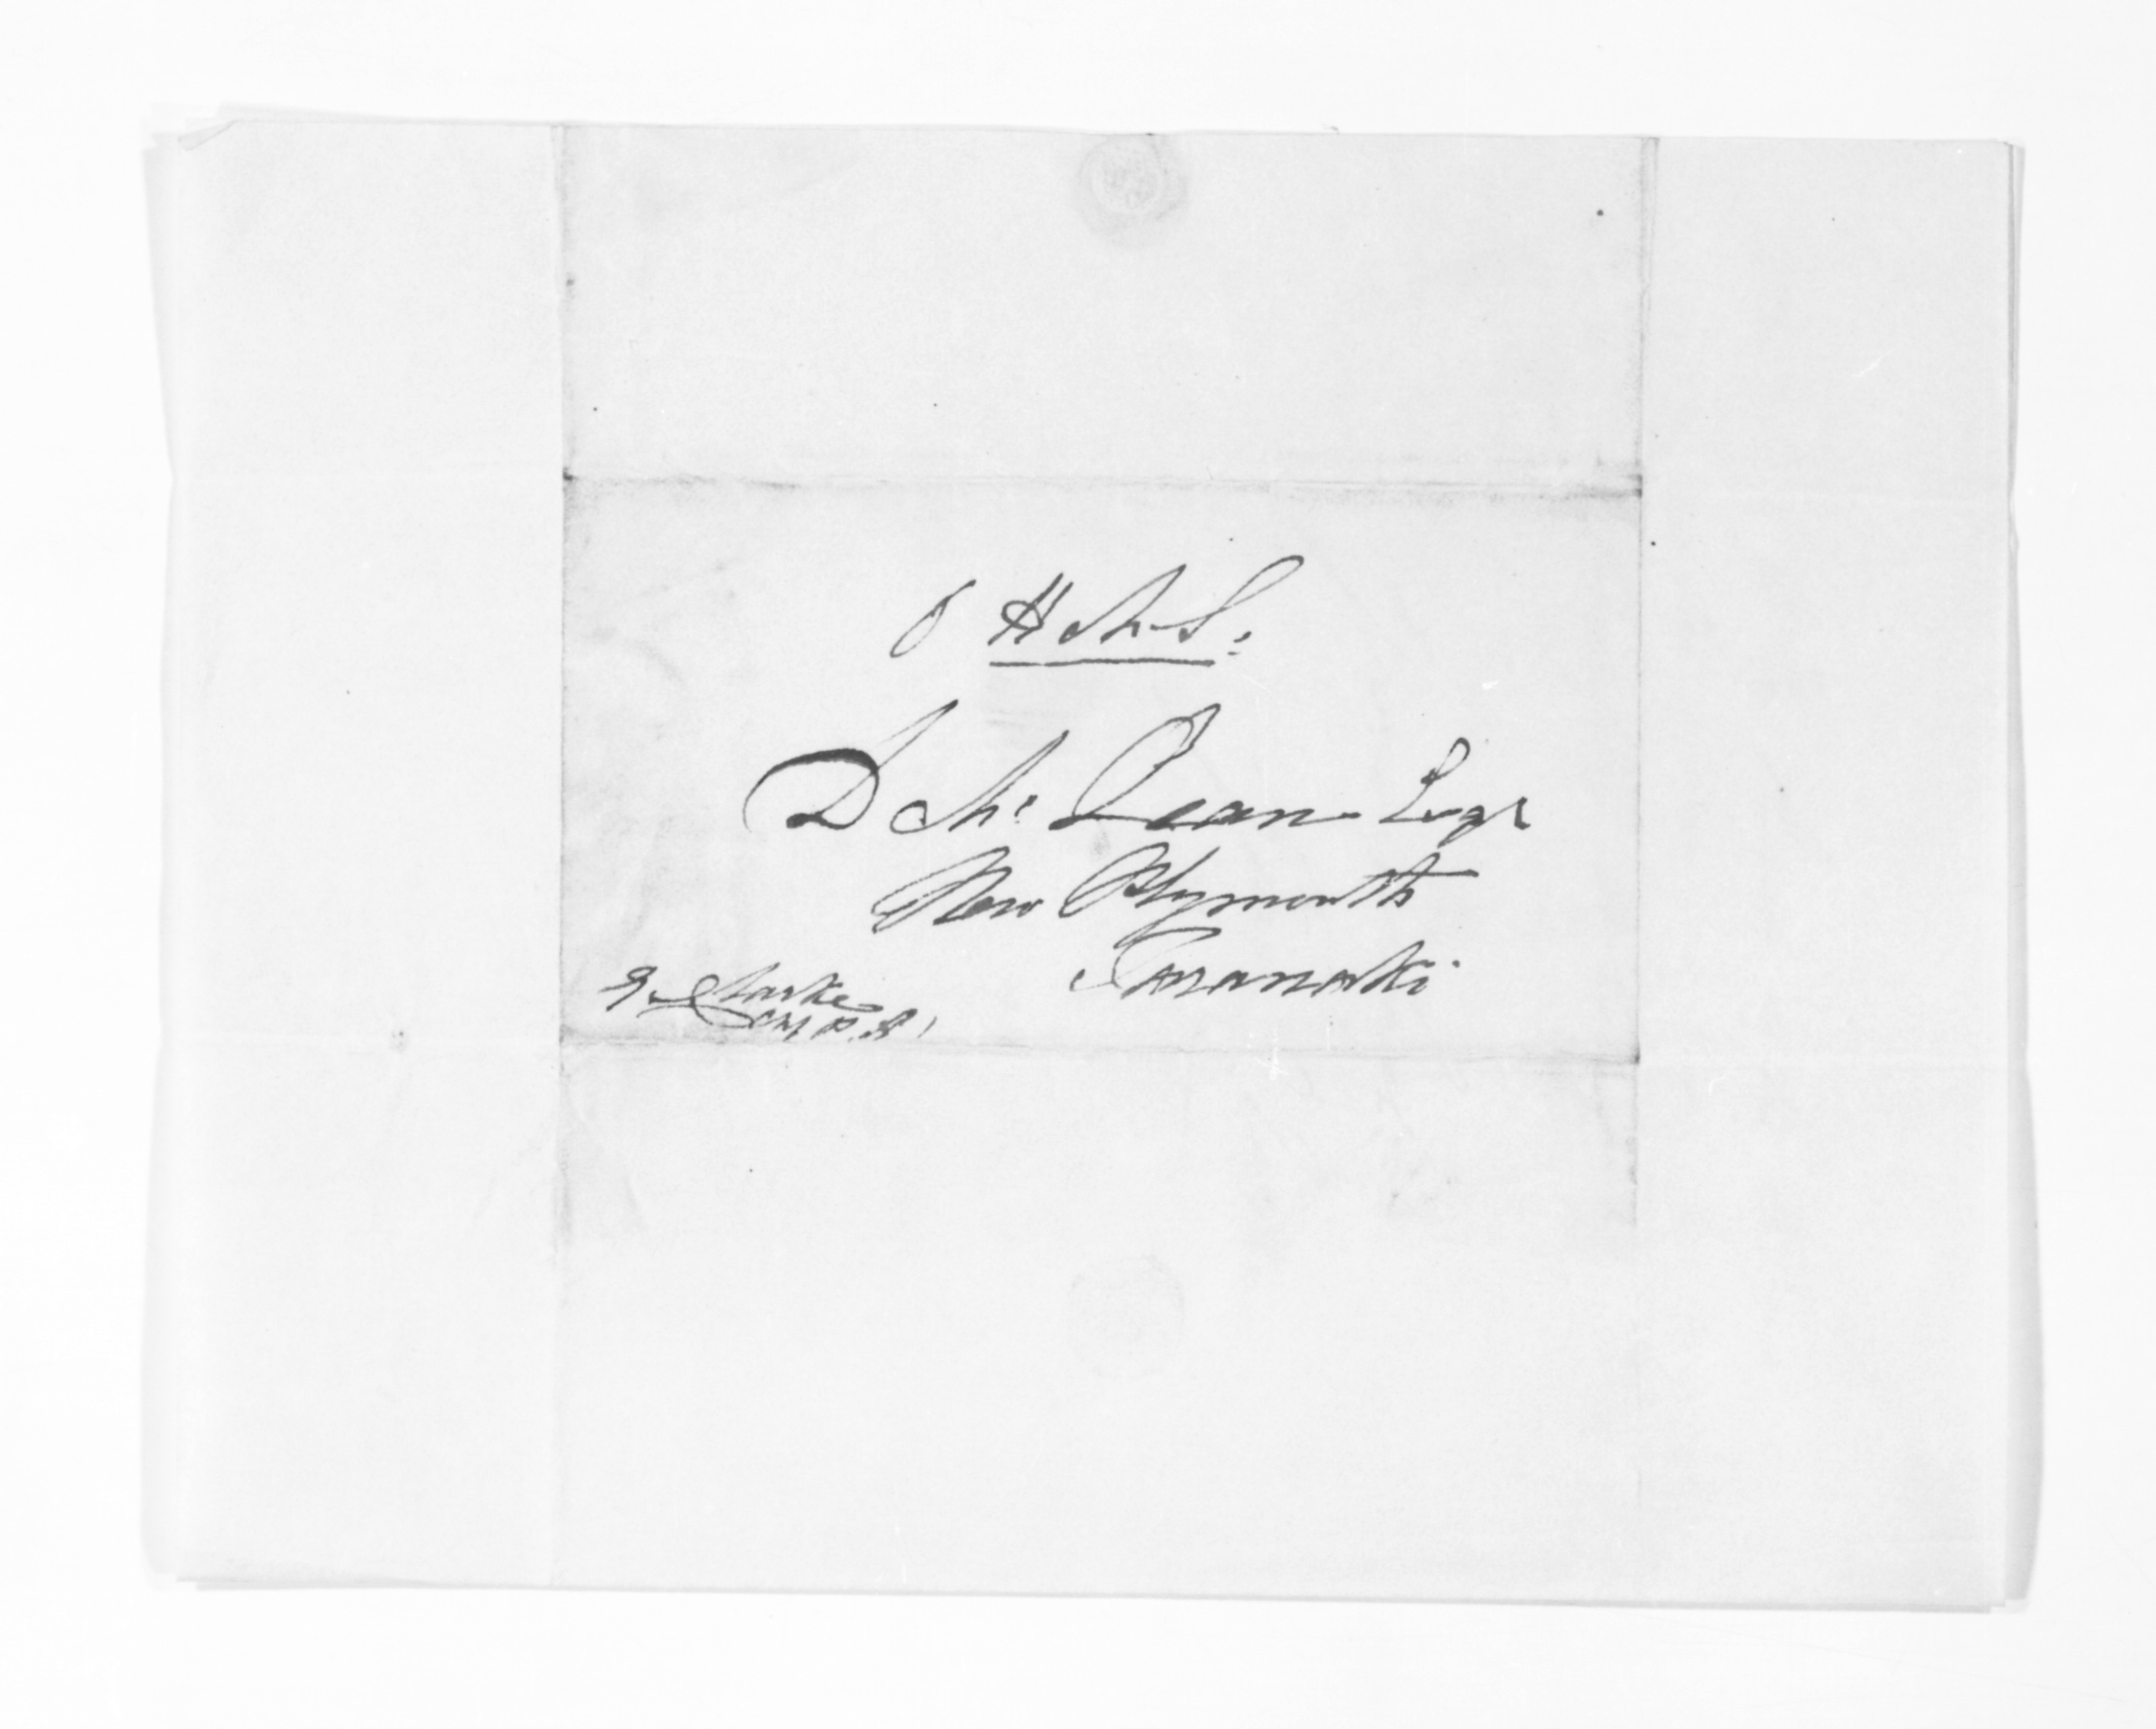 O H M S.
D Mc Lean Esqr
New Plymouth
Taranaki
G. Clarke